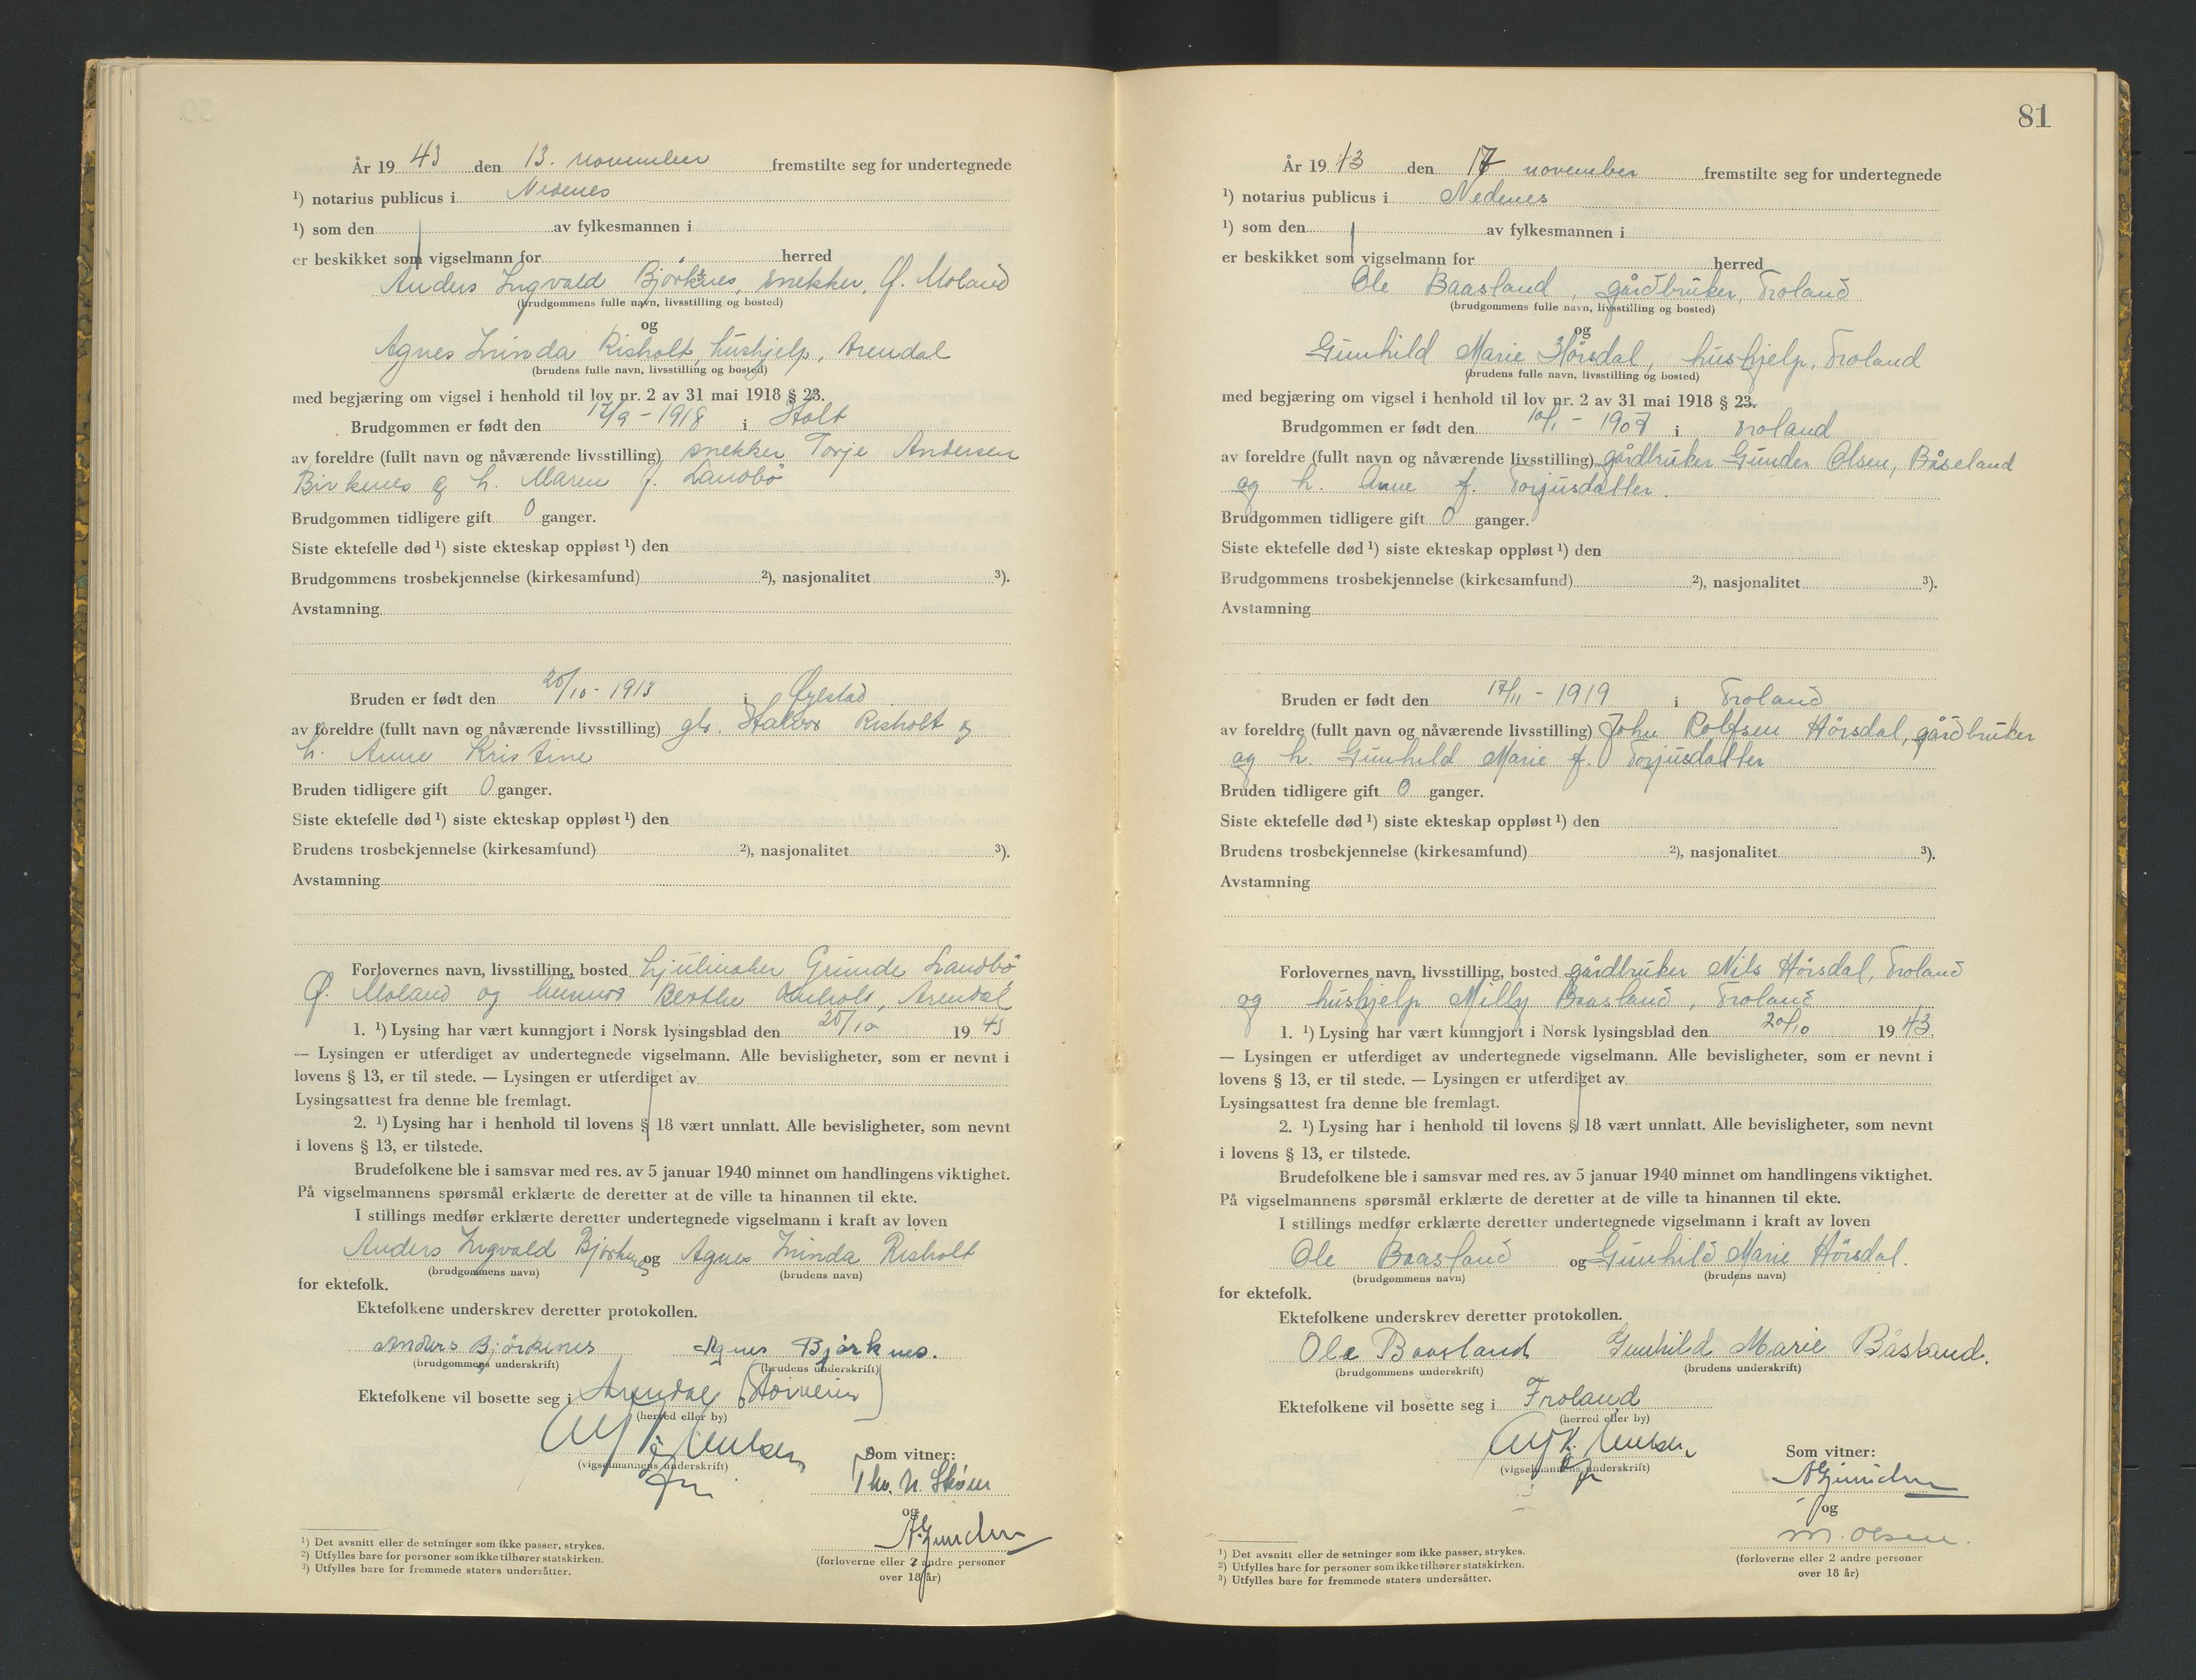 År 1943 den 13. november fremstilte seg for undertegnede
¹) notarius publicus i Nedenes
¹) som den av fylkesmannen i
er beskikket som vigselmann for herred
Anders Ingvald Bjorknes, snekker, Ø. Moland
(brudgommens fulle navn, livsstilling og bosted)
og
Agnes Irinda Risholt, hushjelp, Arendal
(brudens fulle navn, livsstilling og bosted)
med begjæring om vigsel i henhold til lov nr. 2 av 31 mai 1918 § 23.
Brudgommen er født den 17/9 - 1918 i Holt
av foreldre (fullt navn og nåværende livsstilling) snekker Torje Andersen
Birkenes og h. Maren f. Landbö
Brudgommen tidligere gift 0 ganger.
Siste ektefelle død ¹) siste ekteskap oppløst ¹) den
Brudgommens trosbekjennelse (kirkesamfund) ²), nasjonalitet ³).
Avstamning
Bruden er født den /10 - 1913 i Øyestad
av foreldre (fullt navn og nåværende livsstilling) gbr. Halvor Risholt og
h. Anne Kristine
Bruden tidligere gift 0 ganger.
Siste ektefelle død ¹) siste ekteskap oppløst ¹) den
Brudens trosbekjennelse (kirkesamfund) ²), nasjonalitet ³).
Avstamning
Forlovernes navn, livsstilling, bosted hjulmaker Grunde Landbö
Ø. Moland og Berthe Arendal
1. ¹) Lysing har vært kunngjort i Norsk lysingsblad den /10 1943
— Lysingen er utferdiget av undertegnede vigselmann. Alle bevisligheter, som er nevnt i
lovens § 13, er til stede. — Lysingen er utferdiget av
Lysingsattest fra denne ble fremlagt.
2. ¹) Lysing har i henhold til lovens § 18 vært unnlatt. Alle bevisligheter, som nevnt
i lovens § 13, er tilstede.
Brudefolkene ble i samsvar med res. av 5 januar 1940 minnet om handlingens viktighet.
På vigselmannens spørsmål erklærte de deretter at de ville ta hinannen til ekte.
I stillings medfør erklærte deretter undertegnede vigselmann i kraft av loven
Anders Ingvald Bjorknes og Agnes Irinda Risholt
(brudgommens navn) (brudens navn)
for ektefolk.
Ektefolkene underskrev deretter protokollen.
Anders Björkenes Agnes Bjørknes.
(brudgommens underskrift) (brudens underskrift)
Ektefolkene vil bosette seg i Arendal
(herred eller by)
(vigselmannens underskrift)
Som vitner:
Tho. N. Skøien
og
A Gunderson
(forloverne eller 2 andre personer
over 18 år)
¹) Det avsnitt eller de setninger som ikke passer, strykes.
²) Utfylles bare for personer som ikke tilhører statskirken.
³) Utfylles bare for fremmede staters undersåtter.
81
År 1943 den 17 november fremstilte seg for undertegnede
¹) notarius publicus i Nedenes
¹) som den av fylkesmannen i
er beskikket som vigselmann for herred
Ole Baasland, gårdbruker, Froland
(brudgommens fulle navn, livsstilling og bosted)
og
Gunhild Marie Hörsdal, hushjelp, Froland
(brudens fulle navn, livsstilling og bosted)
med begjæring om vigsel i henhold til lov nr. 2 av 31 mai 1918 § 23.
Brudgommen er født den 10/1 - i Froland
av foreldre (fullt navn og nåværende livsstilling) gårdbruker Gunder Olsen, Båseland
og h. Anne f. Torjusdatter.
Brudgommen tidligere gift 0 ganger.
Siste ektefelle død ¹) siste ekteskap oppløst ¹) den
Brudgommens trosbekjennelse (kirkesamfund) ²), nasjonalitet ³).
Avstamning
Bruden er født den 17/11 - 1919 i Froland
av foreldre (fullt navn og nåværende livsstilling) John Rolfsen Hörsdal, gårdbruker
og h. Gunhild Marie f. Torjusdatter
Bruden tidligere gift 0 ganger.
Siste ektefelle død ¹) siste ekteskap oppløst ¹) den
Brudens trosbekjennelse (kirkesamfund) ²), nasjonalitet ³).
Avstamning
Forlovernes navn, livsstilling, bosted gårdbruker Nils Hörsdal, Froland
og hushjelp Milly Baasland, Froland
1. ¹) Lysing har vært kunngjort i Norsk lysingsblad den 20/10 1943.
— Lysingen er utferdiget av undertegnede vigselmann. Alle bevisligheter, som er nevnt i
lovens § 13, er til stede. — Lysingen er utferdiget av
Lysingsattest fra denne ble fremlagt.
2. ¹) Lysing har i henhold til lovens § 18 vært unnlatt. Alle bevisligheter, som nevnt
i lovens § 13, er tilstede.
Brudefolkene ble i samsvar med res. av 5 januar 1940 minnet om handlingens viktighet.
På vigselmannens spørsmål erklærte de deretter at de ville ta hinannen til ekte.
I stillings medfør erklærte deretter undertegnede vigselmann i kraft av loven
Ole Baasland og Gunhild Marie Hörsdal.
(brudgommens navn) (brudens navn)
for ektefolk.
Ektefolkene underskrev deretter protokollen.
Ole Baasland Gunhild Marie Båsland.
(brudgommens underskrift) (brudens underskrift)
Ektefolkene vil bosette seg i Froland
(herred eller by)
(vigselmannens underskrift)
Som vitner:
A Gunderson
og
M. Olsen.
(forloverne eller 2 andre personer
over 18 år)
¹) Det avsnitt eller de setninger som ikke passer, strykes.
²) Utfylles bare for personer som ikke tilhører statskirken.
³) Utfylles bare for fremmede staters undersåtter.